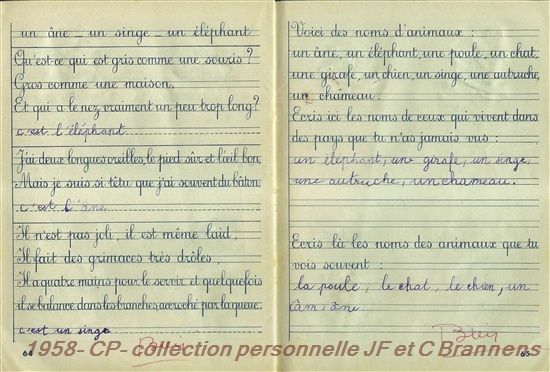 un âne _ un singe _ un éléphant
Qu'est-ce qui est gris comme une souris ?
Gros comme une maison,
Et qui a le nez vraiment un peu trop long ?
c'est l'éléphant
J'ai deux longues oreilles, le pied sûr et l'œil bon,
Mais je suis si têtu que j'ai souvent du bâton.
c'est l'âne
Il n'est pas joli, il est même laid,
Il fait des grimaces très drôles,
Il a quatre mains pour le servir et quelquefois
il se balance dans les branches, accroché par la queue.
c'est un singe
Bien
64
Voici des noms d'animaux :
un âne, un éléphant, une poule, un chat,
une girafe, un chien, un singe, une autruche,
un chameau.
Ecris ici les noms de ceux qui vivent dans
des pays que tu n'as jamais vus :
un éléphant, une girafe, un singe,
une autruche, un chameau.
Ecris là les noms des animaux que tu
vois souvent :
la poule, le chat, le chien, un
âne.
Bien
65
1958- CP- collection personnelle JF et C Brannens